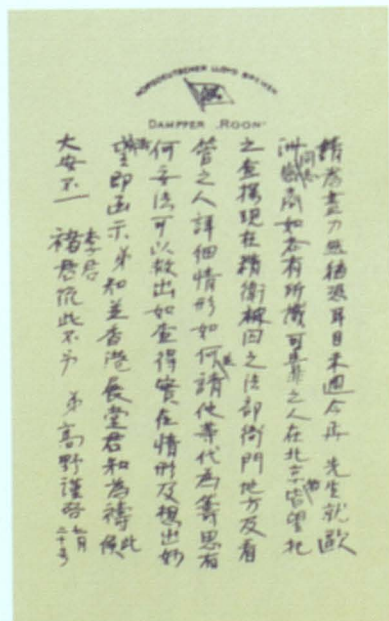 NORDDEUTSCHER LLOYD BREMEN
DAMPFER „ROON"
請為盡力無猶恐耳目未週今再 先生就歐
洲同志商如否有所識可靠之人在北京皆望托
之查探現在精衛被囚之法部衙門地方及看
管之人詳細情形如何並請他等代為籌思有
何妥法可以救出如查得實在情形及想出妙
法望即函示弟知並香港展堂君知為禱此候
大安不一 李君 褚君依此不另 弟高野謹啓 七月二十号